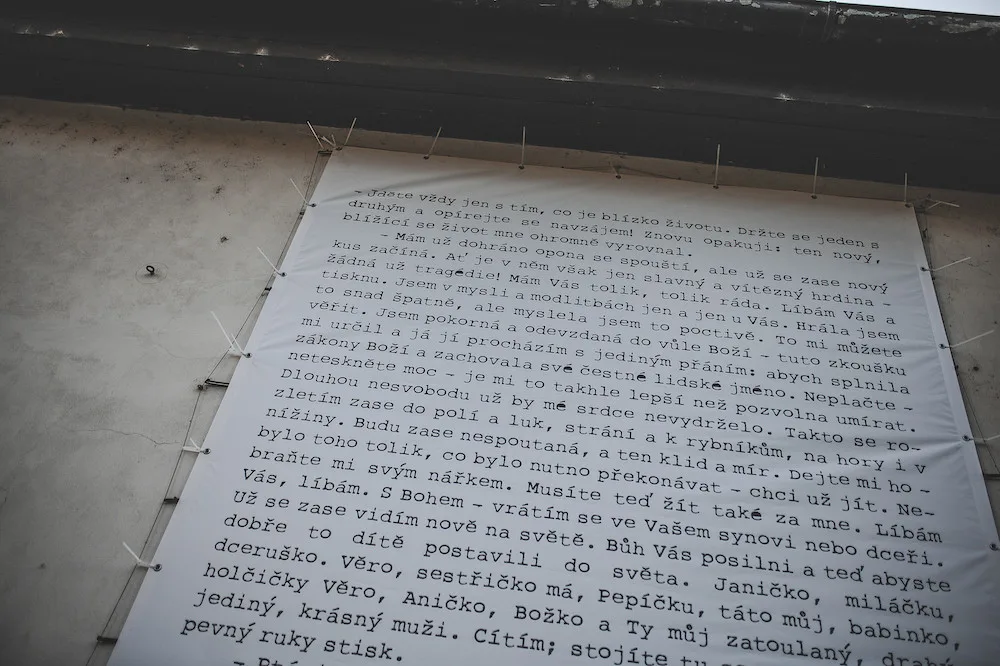 - Jděte vždy jen s tím, co je blízko životu. Držte se jeden s
druhým a opírejte se navzájem! Znovu opakuji: ten nový,
blížící se život mne ohromně vyrovnal.
- Mám už dohráno opona se spouští, ale už se zase nový
kus začíná. Ať je v něm však jen slavný a vítězný hrdina -
žádná už tragédie! Mám Vás tolik, tolik ráda. Líbám Vás a
tisknu. Jsem v mysli a modlitbách jen a jen u Vás. Hrála jsem
to snad špatně, ale myslela jsem to poctivě. To mi můžete
věřit. Jsem pokorná a odevzdaná do vůle Boží - tuto zkoušku
mi určil a já jí procházím s jediným přáním: abych splnila
zákony Boží a zachovala své čestné lidské jméno. Neplačte -
neteskněte moc - je mi to takhle lepší než pozvolna umírat.
Dlouhou nesvobodu už by mé srdce nevydrželo. Takto se ro-
zletím zase do polí a luk, strání a k rybníkům, na hory i v
nížiny. Budu zase nespoutaná, a ten klid a mír. Dejte mi ho -
bylo toho tolik, co bylo nutno překonávat - chci už jít. Ne-
braňte mi svým nářkem. Musíte teď žít také za mne. Líbám
Vás, líbám. S Bohem - vrátím se ve Vašem synovi nebo dceři.
Už se zase vidím nově na světě. Bůh Vás posilni a teď abyste
dobře to dítě postavili do světa. Janičko, miláčku,
dceruško. Věro, sestřičko má, Pepíčku, táto můj, babinko,
holčičky Věro, Aničko, Božko a Ty můj zatoulaný,
jediný, krásný muži. Cítím; stojíte
pevný ruky stisk.